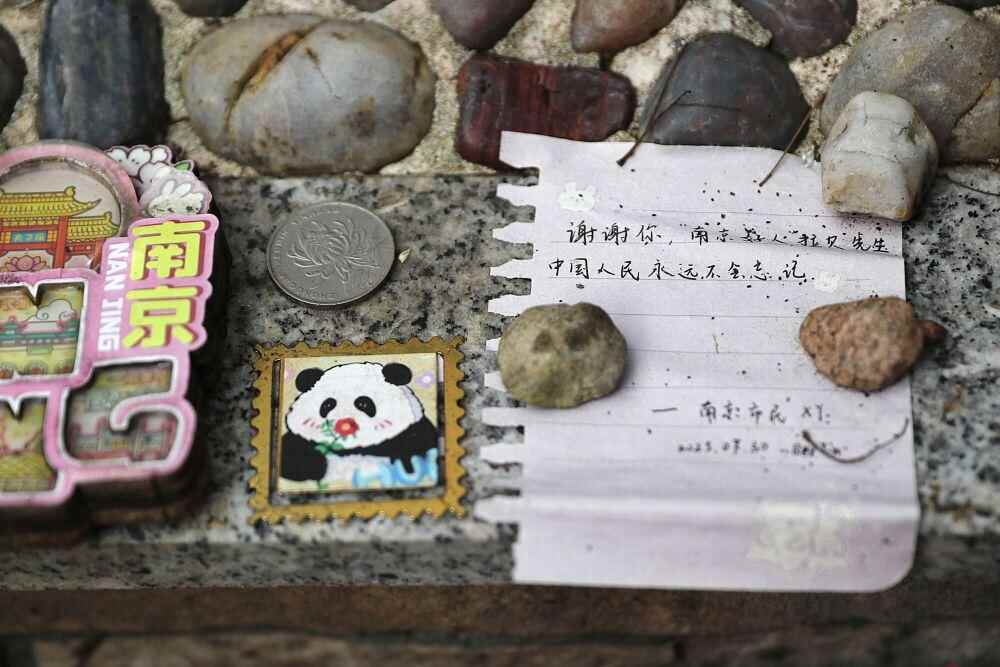 南京
NAN JING
谢谢你，南京好人“拉贝”先生
中国人民永远不会忘记.
— 南京市民 XY.